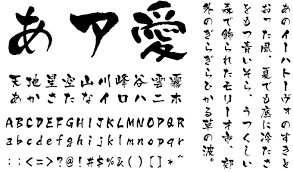 あア愛
天地星空山川峰谷雲霧
あかさたなイロハニホ
ABCDEFGHIJKLMNOPQR
abcdefghijklmnopqr
:;<=>?@!#$%&()[]*^
あのイーハトーヴォのすきと
おった風、夏でも底に冷たさ
をもつ青いそら、うつくしい
森で飾られたモリーオ市、郊
外のぎらぎらひかる草の波。